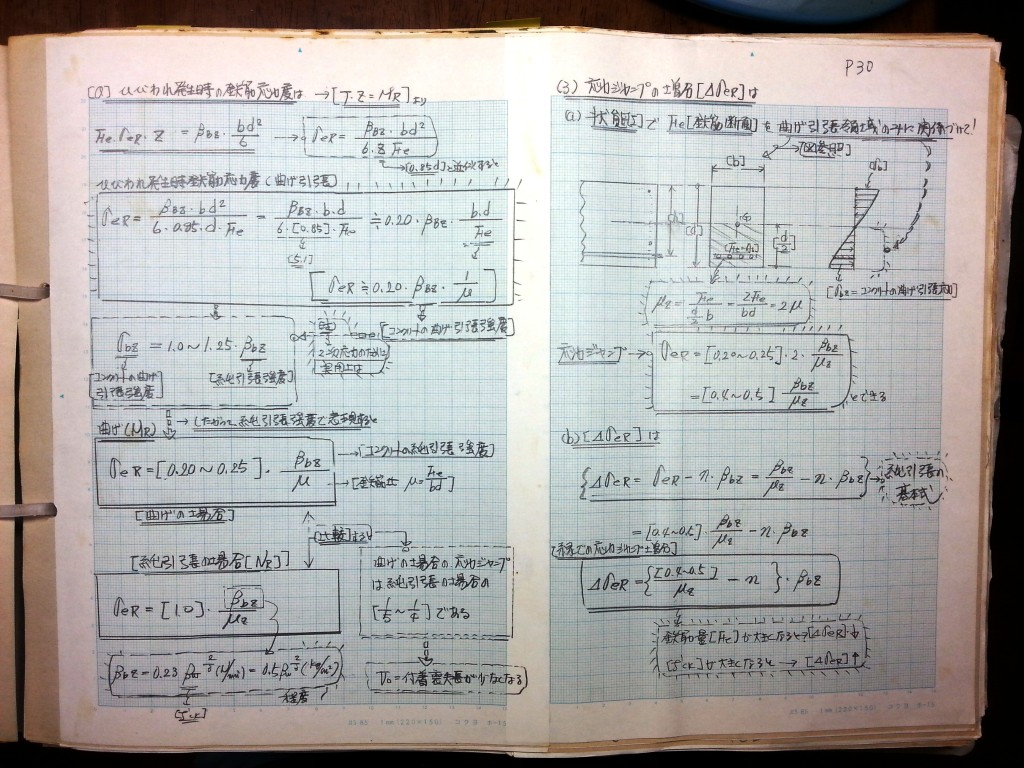 P30
(2) ひびわれ発生時の鉄筋応力度は → [T・Z=MR] より
Fe・σeR・Z = βBZ・bd²/6 → σeR = βBZ・bd²/6・Z・Fe
[0.85d]と近似すると
ひびわれ発生時鉄筋応力度(曲げ引張)
σeR = βBZ・bd²/6・0.85・d・Fe = βBZ・b・d/6・[0.85]・Fe ≒ 0.20・βBZ・b・d/Fe
[5.1]
[σeR ≒ 0.20・βBZ・1/μ]
[コンクリートの曲げ引張強度]
σbz = 1.0〜1.25・βbz
[コンクリートの曲げ引張強度]
[純引張強度]
2次応力のために実用上は
曲げ(MR) → したがって、純引張強度で表現すると
σeR = [0.20〜0.25]・βbz/μ
→[コンクリートの純引張強度]
→[鉄筋比 μ=Fe/bd]
[曲げの場合]
[比較]すると
[純引張の場合[NR]]
σeR = [1.0]・βbz/μz
曲げの場合の応力ジャンプ
は純引張の場合の
[1/5〜1/4]である
βbz=0.23 βw^2/3 (N/mm²) = 0.5βw^2/3 (kg/cm²)
程度
[σck]
v₀=付着喪失長が少なくなる
(3) 応力ジャンプの場合[ΔσeR]は
(a) 状態Ⅰで Fe[鉄筋断面]を"曲げ引張領域"のみに関係づけて!
[図参照]
[b]
[σb]
[h]
[d]
[d/2]
[σbz=コンクリートの曲げ引張応力]
μz = Fe/(d/2・b) = 2Fe/bd = 2μ
応力ジャンプ → σeR = [0.20〜0.25]・2・βbz/μz
= [0.4〜0.5] βbz/μz
とできる
(b) [ΔσeR]は
{ΔσeR = σeR − n・βbz = βbz/μz − n・βbz} → 純引張の基本式
= [0.4〜0.5]・βbz/μz − n・βbz
ΔσeR = {[0.4〜0.5]/μz − n}・βbz
鉄筋量[Fe]が大となると→[ΔσeR]↓
[σck]が大となると → [ΔσeR]↑